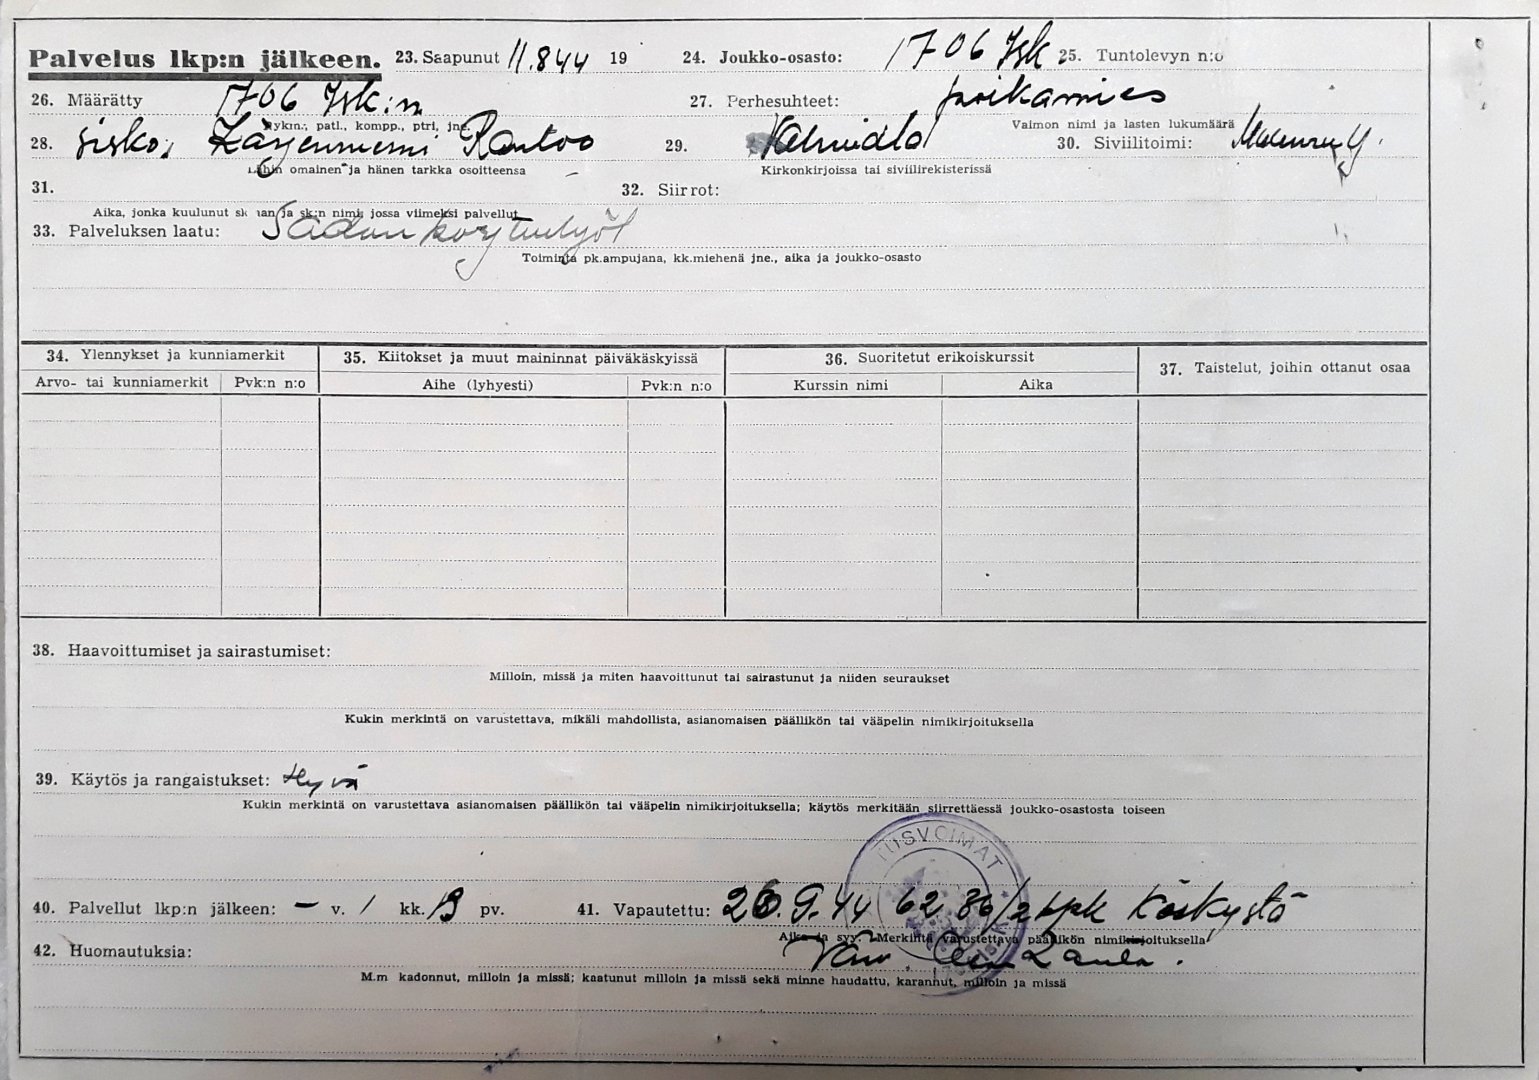 Palvelus lkp:n jälkeen. 23. Saapunut 11.844 19 24. Joukko-osasto: 1706 Isk 25. Tuntolevyn n:o
26. Määrätty 1706 Isk:n 27. Perhesuhteet: poikamies
Rykm., patl., kompp., ptri, jne. Vaimon nimi ja lasten lukumäärä
28. sisko, 29. 30. Siviilitoimi:
Lähin omainen ja hänen tarkka osoitteensa Kirkonkirjoissa tai siviilirekisterissä
31. 32. Siirrot:
Aika, jonka kuulunut sk:aan ja sk:n nimi, jossa viimeksi palvellut
33. Palveluksen laatu: Sadan korjuutyöt
Toiminta pk.ampujana, kk.miehenä jne., aika ja joukko-osasto
34. Ylennykset ja kunniamerkit 35. Kiitokset ja muut maininnat päiväkäskyissä 36. Suoritetut erikoiskurssit 37. Taistelut, joihin ottanut osaa
Arvo- tai kunniamerkit Pvk:n n:o Aihe (lyhyesti) Pvk:n n:o Kurssin nimi Aika
38. Haavoittumiset ja sairastumiset:
Milloin, missä ja miten haavoittunut tai sairastunut ja niiden seuraukset
Kukin merkintä on varustettava, mikäli mahdollista, asianomaisen päällikön tai vääpelin nimikirjoituksella
39. Käytös ja rangaistukset: Hyvä
Kukin merkintä on varustettava asianomaisen päällikön tai vääpelin nimikirjoituksella; käytös merkitään siirrettäessä joukko-osastosta toiseen
USVOIMAT
40. Palvellut lkp:n jälkeen: – v. 1 kk. 13 pv. 41. Vapautettu: 23.9.44 6236/2 käskystä
Aika ja syy. Merkintä varustettava päällikön nimikirjoituksella
42. Huomautuksia:
M.m kadonnut, milloin ja missä; kaatunut milloin ja missä sekä minne haudattu, karannut, milloin ja missä